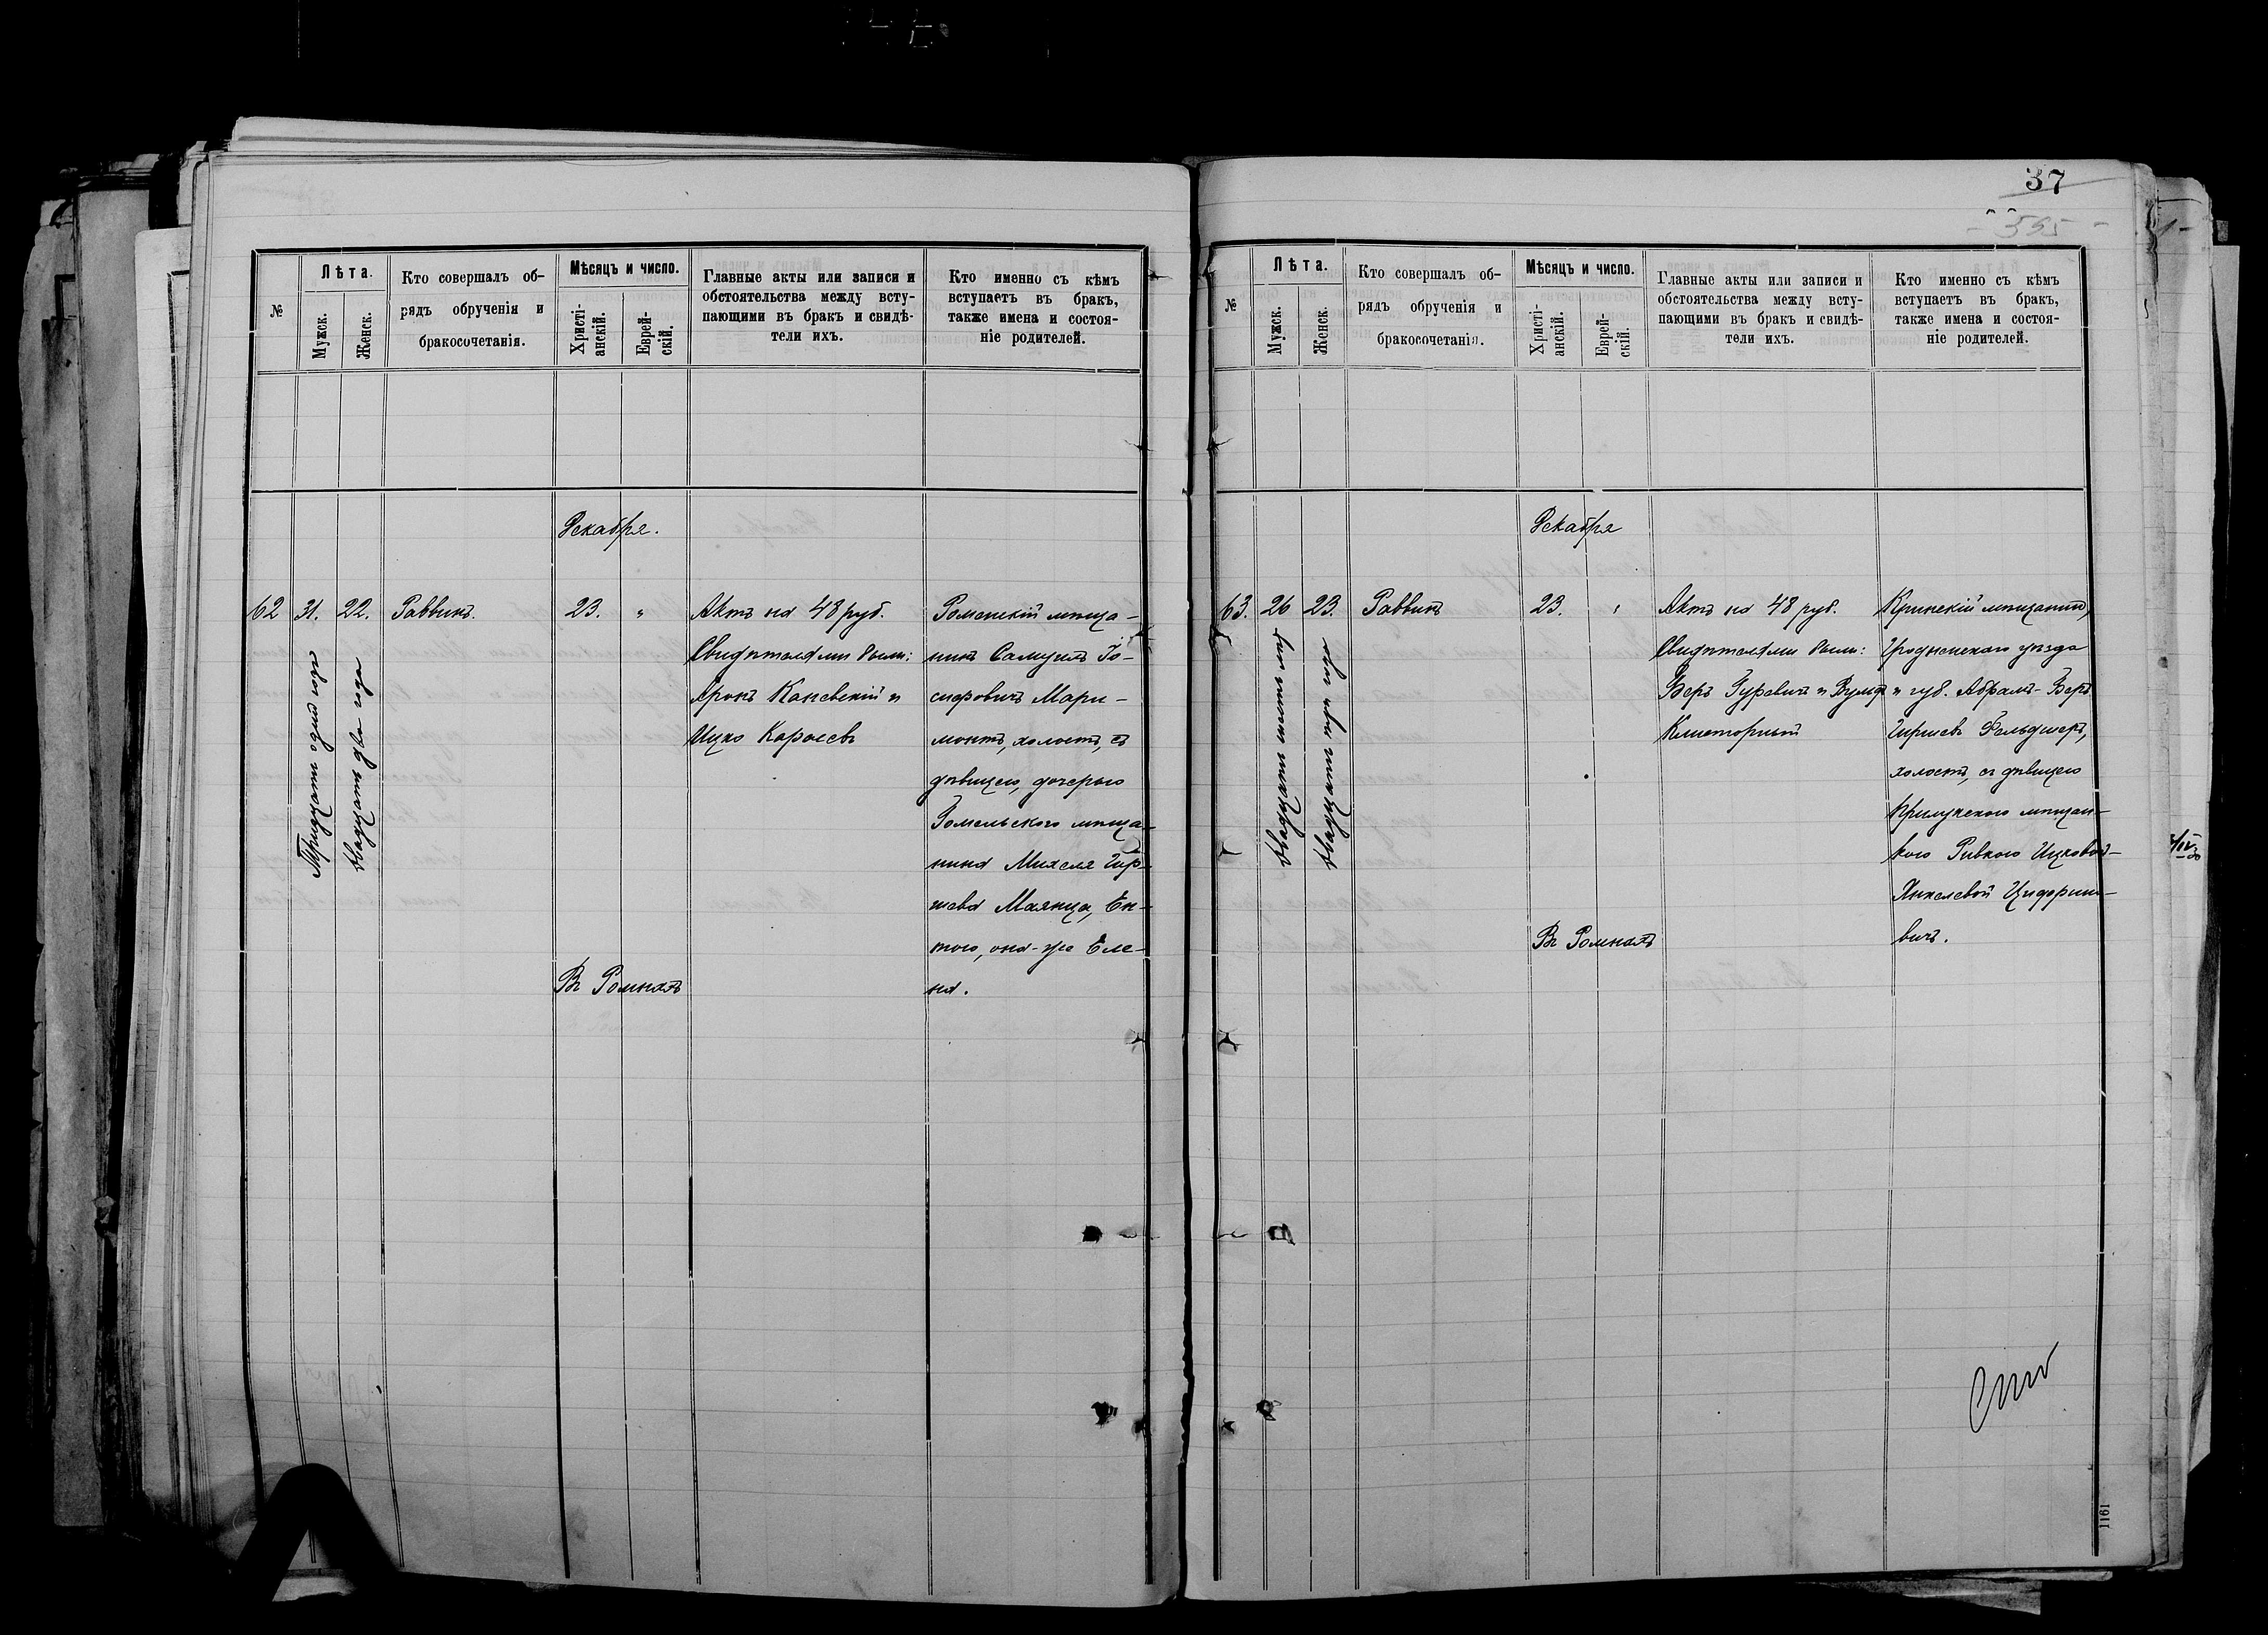 №
Лѣта.
Мужск.
Женск.
Кто совершалъ об-
рядъ обрученія и
бракосочетанія.
Мѣсяцъ и число.
Христі-
анскій.
Еврей-
скій.
Главные акты или записи и
обстоятельства между всту-
пающими въ бракъ и свидѣ-
тели ихъ.
Кто именно съ кѣмъ
вступаетъ въ бракъ,
также имена и состоя-
ніе родителей.
Декабря.
62
31.
Тридцать одного года
22.
двадцать два года
Раввинъ.
23.
"
Въ Ромнахъ
Актъ на 48 руб.
Свидѣтелями были:
Аронъ Каневскій и
Ицко Карасевъ
Роменскій мѣща-
нинъ Самуилъ Іо-
сифовичъ Мари-
монтъ, холостъ, съ
дѣвицею, дочерью
Гомельскаго мѣща-
нина Михеля Гир-
шева Маянца, Ен-
тою, она-же Еле-
на.
37
595
№
Лѣта.
Мужск.
Женск.
Кто совершалъ об-
рядъ обрученія и
бракосочетанія.
Мѣсяцъ и число.
Христі-
анскій.
Еврей-
скій.
Главные акты или записи и
обстоятельства между всту-
пающими въ бракъ и свидѣ-
тели ихъ.
Кто именно съ кѣмъ
вступаетъ въ бракъ,
также имена и состоя-
ніе родителей.
Декабря
63.
26
двадцать шесть лѣтъ
23.
двадцать три года
Раввинъ
23.
Въ Ромнахъ
Актъ на 48 руб.
Свидѣтелями были:
Беръ Гуревичъ и Вульфъ
Клисторный
Кринскій мѣщанинъ,
Гродненскаго уѣзда
и губ. Абрамъ-Беръ
Гиршевъ Фельдшеръ,
холостъ, съ дѣвицею
Прилукскою мѣщан-
кою Ривкою Ицковой-
Хикелевой Цидорин-
вичъ.
1161